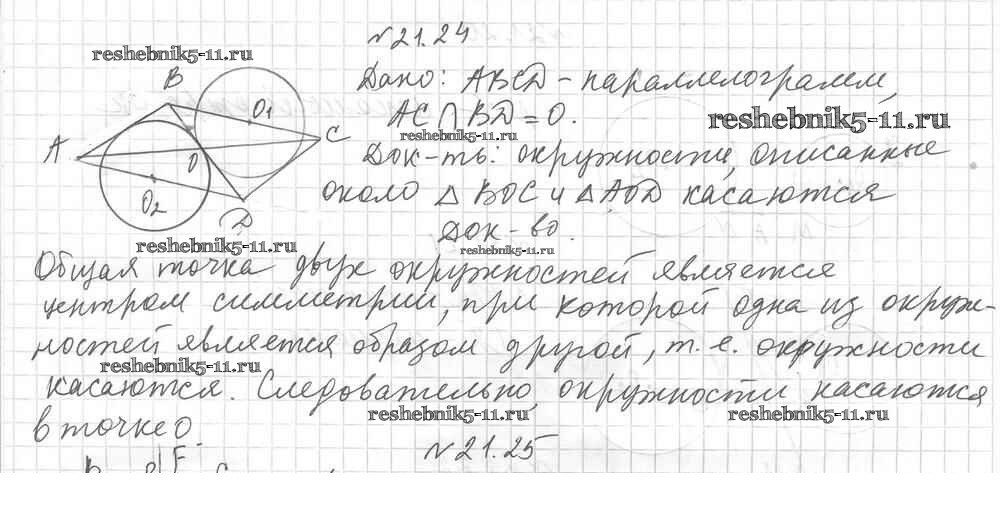 №21.24
reshebnik5-11.ru
Дано: ABCD - параллелограмм,
AC ∩ BD = O.
reshebnik5-11.ru
reshebnik5-11.ru
B
O1
C
A
O
O2
D
Док-ть: окружности, описанные
около △ BOC и △ AOD касаются
Док-во.
reshebnik5-11.ru
reshebnik5-11.ru
Общая точка двух окружностей является
центром симметрии, при которой одна из окруж-
ностей является образом другой, т. е. окружности
reshebnik5-11.ru
касаются. Следовательно, окружности касаются
reshebnik5-11.ru
reshebnik5-11.ru
в точке O.
№21.25